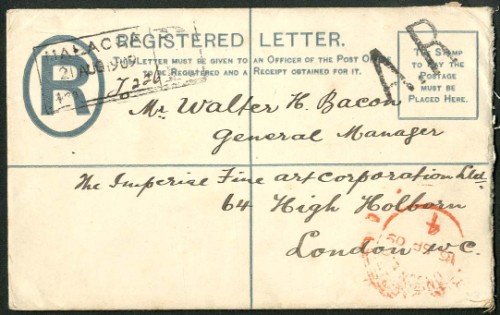 REGISTERED LETTER.
MALACCA
21 AUG 1909
R
THE LETTER MUST BE GIVEN TO AN OFFICER OF THE POST OFFICE
TO BE REGISTERED AND A RECEIPT OBTAINED FOR IT.
A.R.
THE STAMP
TO PAY THE
POSTAGE
MUST BE
PLACED HERE.
Mr. Walter H. Bacon
General Manager
The Imperial Fine art Corporation Ltd.
64 High Holborn
London W.C.